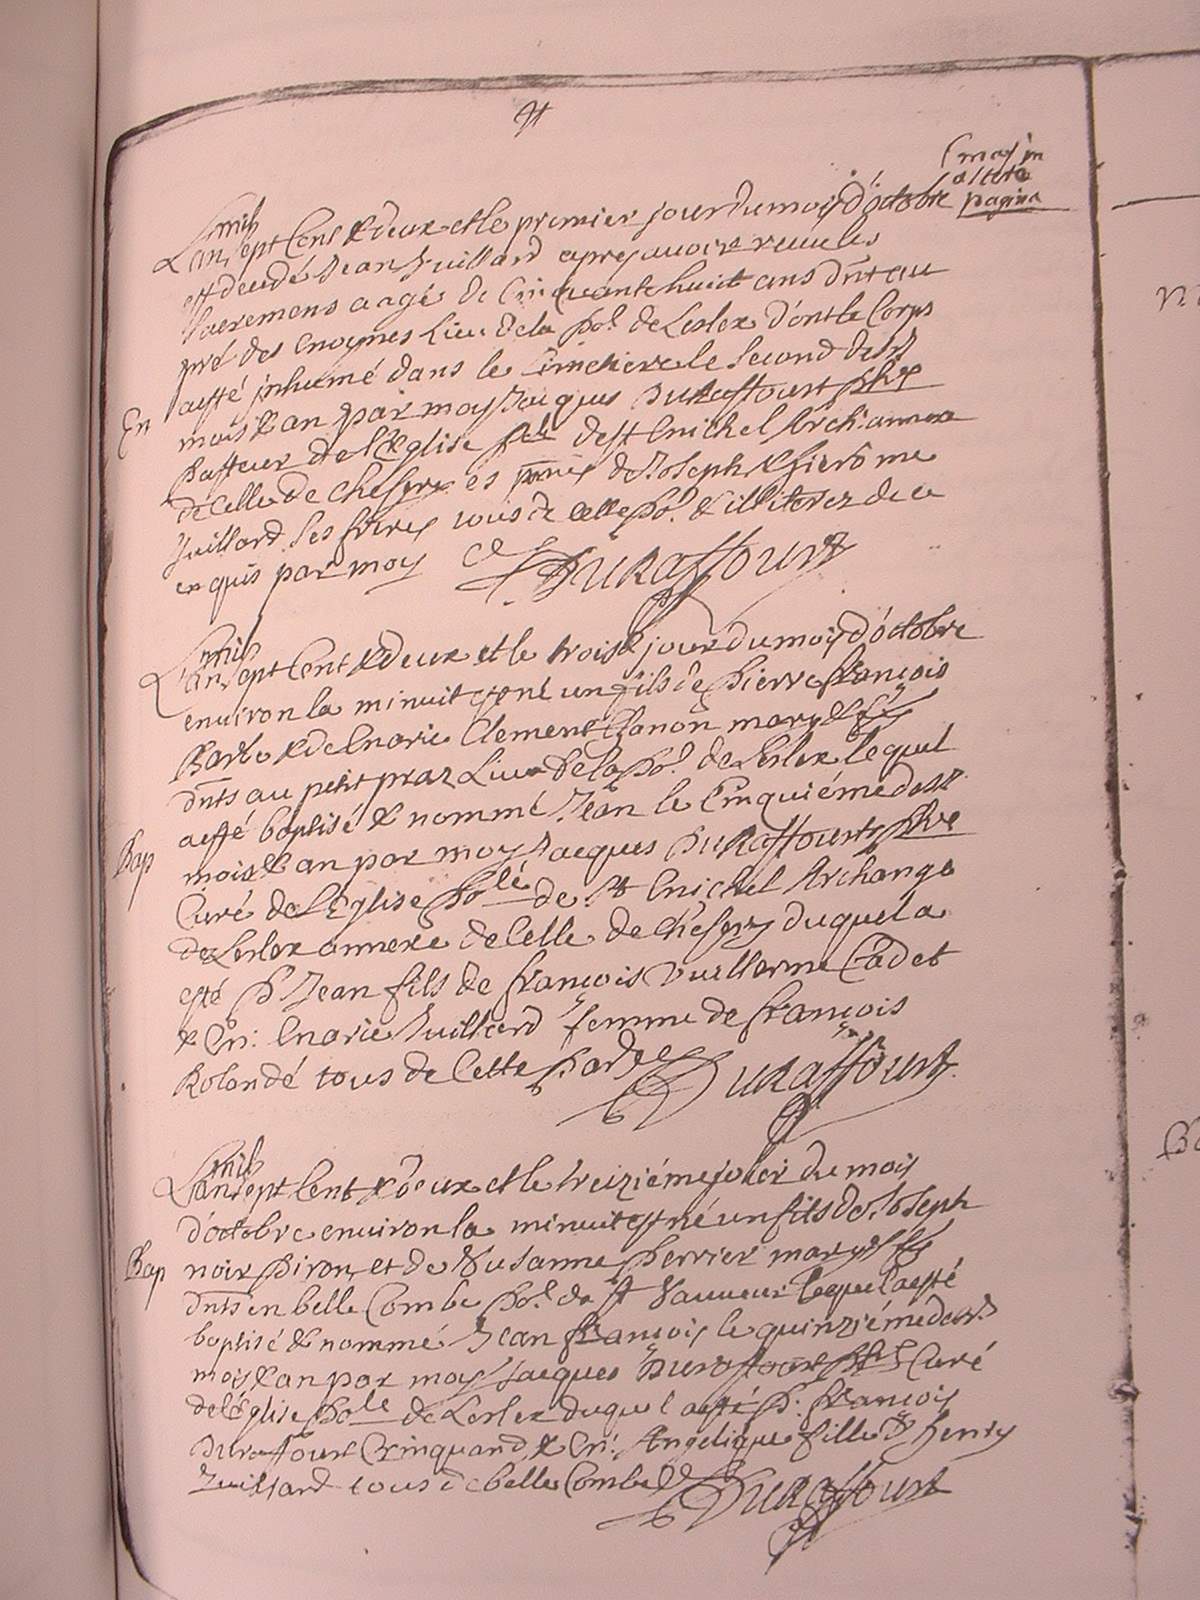 mil
L'an sept Cent & deux et le premier jour du mois d'octobre
est decedé Jean Juillard apres avoir receu les
Sacremens aagé de Cinquante huict ans dnt au
pré des enoymes Lieu de la po.^e de Leslex d'ont le Corps
a esté jnhumé dans le Cimetiere le Second dud.^t
En
mois & an par moy Jacques Duraffourt pbre
pasteur de l'Eglise p^le de st Michel Arch: annexe
de Celle de Chesery es pnces de Joseph & hierôme
Juillard Ses freres tous de cette po.^e & illiterez de ce
enquis par moy
Duraffourt
mil
L'an Sept Cent & deux et le trois.^e jour du mois d'octobre
environ la minuit est né un fils de pierre françois
& de Marie Clement Chanon maryés
dnts au petit praz Lieu de la po.^e de Leslex lequel
a esté baptisé & nommé Jean le Cinquiéme dud.^t
Bap
mois & an par moy Jacques Duraffourt pbre
Curé de l'Eglise po^le de St Michel Archange
de Leslex annexe de Celle de Chesery duquel a
esté P. Jean fils de françois Vuillerme Cadet
& M: Marie Juillard femme de françois
Rolandé tous de Cette par.^sse
Duraffourt
mil
L'an sept Cent & deux et le treiziéme jour du mois
d'octobre environ la minuit est né un fils de Joseph
Bap
noir piron et de Susanne perrier maryés
dnts en belle Combe po.^e de st Sauveur lequel a esté
baptisé & nommé Jean François le quinziéme dud.^t
mois & an par moy Jacques Duraffourt pbre Curé
de l'Eglise po^le de Leslex duquel a esté P: François
Duraffourt Crinquand & M: Angelique fille de henry
Juillard tous de belle Combe
Duraffourt
in
altera
pagina